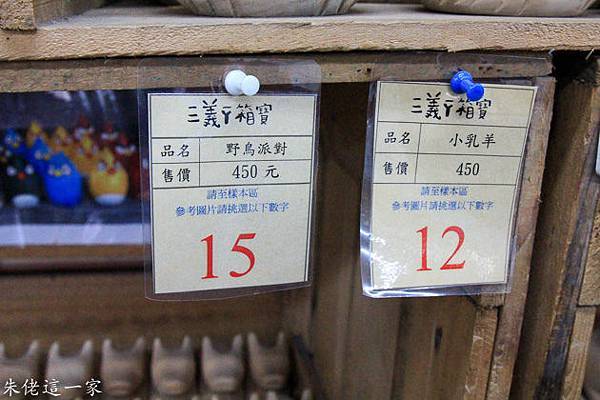 三義ㄚ箱寶
品名 野鳥派對
售價 450 元
請至樣本區
參考圖片請挑選以下數字
15
三義ㄚ箱寶
品名 小乳羊
售價 450
請至樣本區
參考圖片請挑選以下數字
12
朱佬這一家